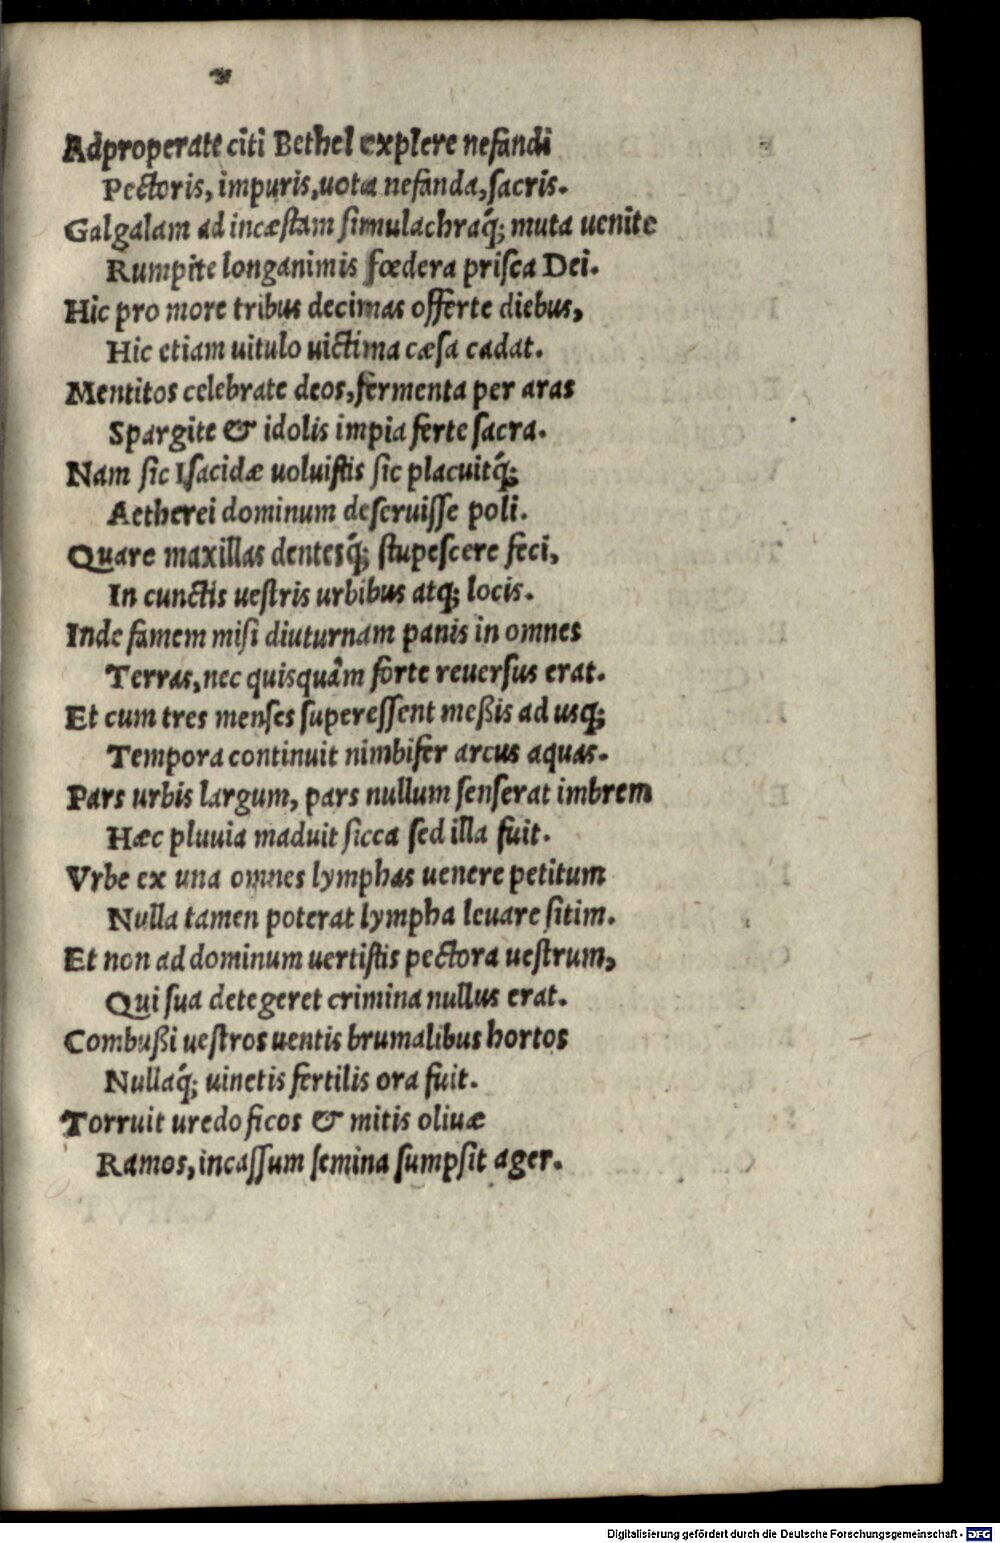 Adproperate citi Bethel explere nefandi
Pectoris, impuris, uota nefanda, sacris.
Galgalam ad incæstam simulachraq́; muta uenite
Rumpite longanimis fœdera prisca Dei.
Hic pro more tribus decimas offerte diebus,
Hic etiam uitulo uictima cæsa cadat.
Mentitos celebrate deos, fermenta per aras
Spargite & idolis impia ferte sacra.
Nam sic Isacidæ uoluistis sic placuitq́;
Aetherei dominum deseruisse poli.
Quare maxillas dentesq́; stupescere feci,
In cunctis uestris urbibus atq; locis.
Inde famem misi diuturnam panis in omnes
Terras, nec quisquâm forte reuersus erat.
Et cum tres menses superessent meßis ad usq;
Tempora continuit nimbifer arcus aquas.
Pars urbis largum, pars nullum senserat imbrem
Hæc pluuia maduit sicca sed illa fuit.
Vrbe ex una omnes lymphas uenere petitum
Nulla tamen poterat lympha leuare sitim.
Et non ad dominum uertistis pectora uestrum,
Qui sua detegeret crimina nullus erat.
Combußi uestros uentis brumalibus hortos
Nullaq́; uinetis fertilis ora fuit.
Torruit uredo ficos & mitis oliuæ
Ramos, incassum semina sumpsit ager.
Digitalisierung gefördert durch die Deutsche Forschungsgemeinschaft - DFG